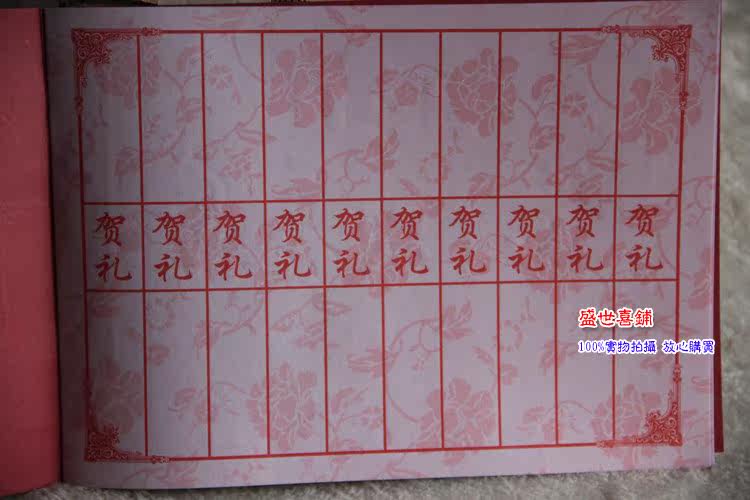 贺礼
贺礼
贺礼
贺礼
贺礼
贺礼
贺礼
贺礼
贺礼
贺礼
盛世喜鋪
100%實物拍攝 放心購買